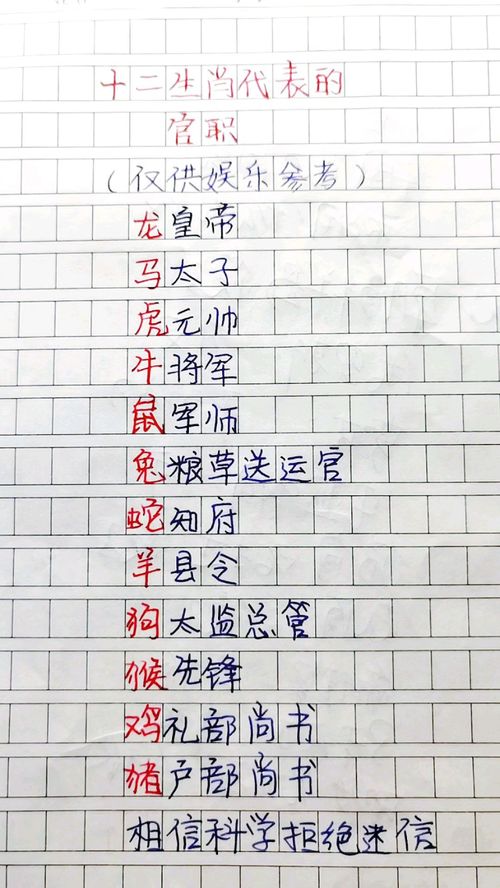 十二生肖代表的
官职
（仅供娱乐参考）
龙皇帝
马太子
虎元帅
牛将军
鼠军师
兔粮草送运官
蛇知府
羊县令
狗太监总管
猴先锋
鸡礼部尚书
猪户部尚书
相信科学拒绝迷信